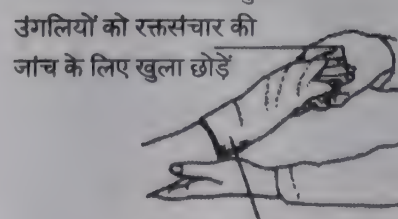 उंगलियों को रक्तसंचार की
जांच के लिए खुला छोड़ें